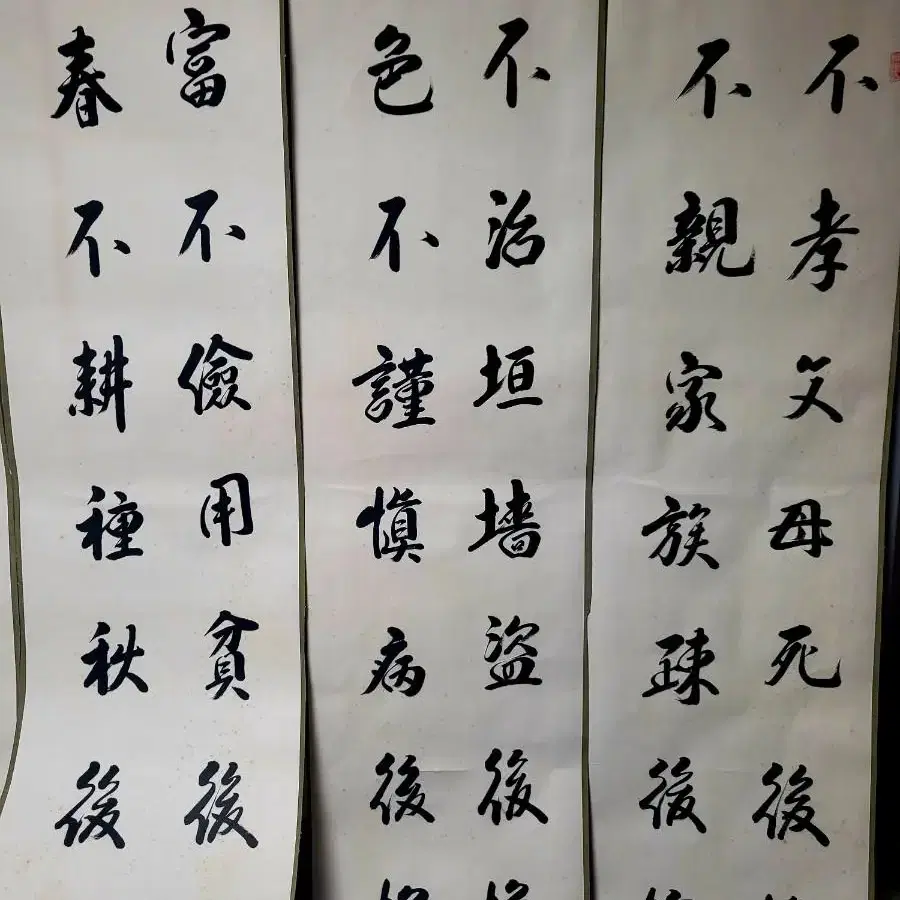 不孝父母死後
不親家族疎後
不治垣墙盜後
色不謹慎病後
富不儉用貧後
春不耕種秋後